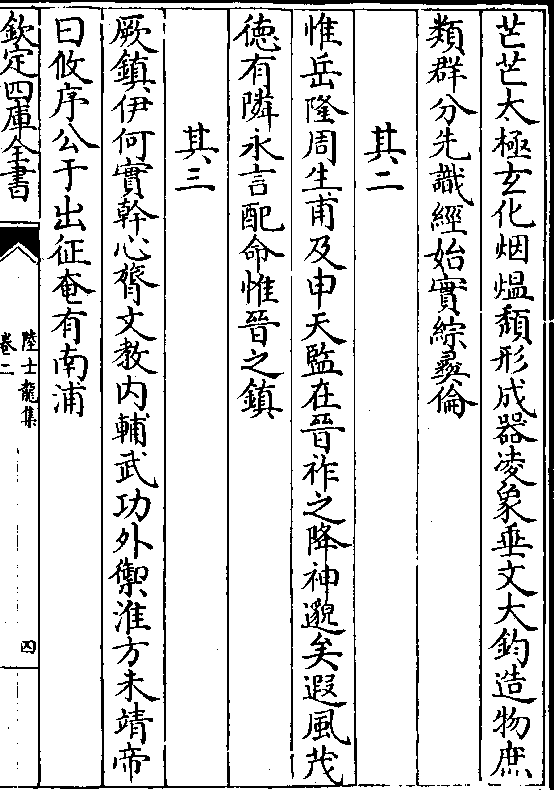 芒芒太極玄化烟熅頽形成器凌象垂文大鈞造物庶
類群分先識經始實綜彞倫
其二
惟岳隆周生甫及申天監在晉祚之降神邈矣遐風茂
徳有隣永言配命惟晉之鎮
其三
厥鎮伊何實幹心膂文教内輔武功外禦淮方未靖帝
曰攸序公于出征奄有南浦
欽定四庫全書
陸士龍集
卷二
四